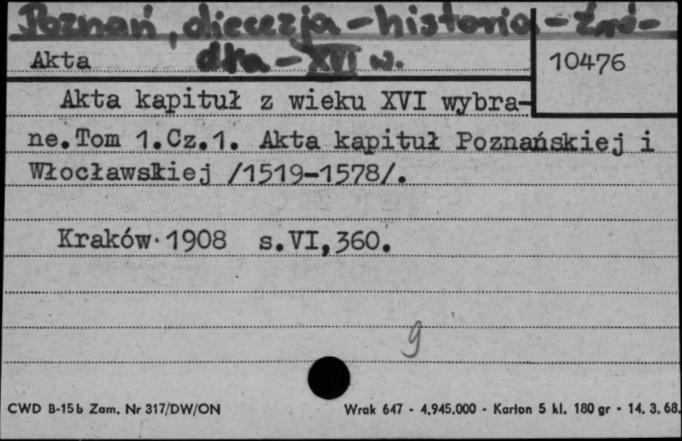 Poznań, diecezja - historia - źró-
dła - XVI w.
Akta
10476
Akta kapituł z wieku XVI wybra-
ne.Tom 1.Cz.1. Akta kapituł Poznańskiej i
Włocławskiej /1519-1578/.
Kraków·1908 s.VI,360.
g
CWD B-15b Zam. Nr 317/DW/ON
Wrak 647 - 4.945.000 - Karton 5 kl. 180 gr - 14. 3. 68.